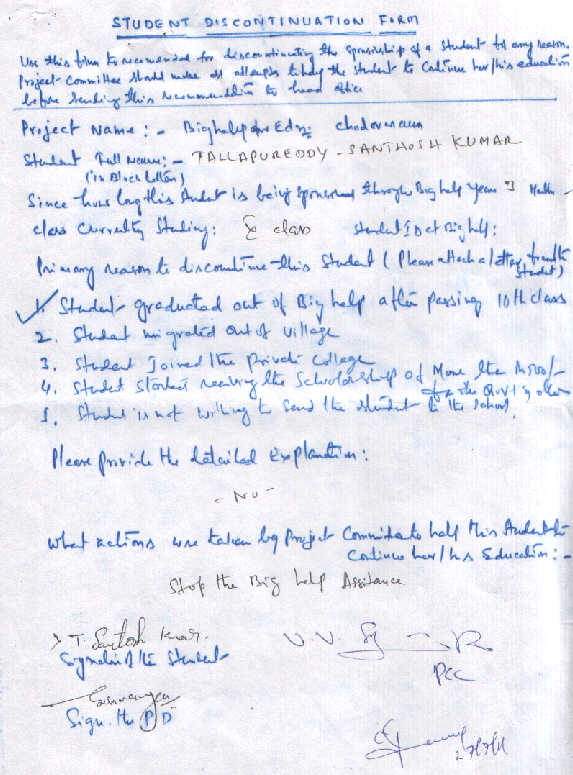 STUDENT DISCONTINUATION FORM
Use this form to recommended for discontinuating the sponsorship of a student for any reason.
Project Committee should make all attempts to help the student to Continue her/his education
before sending this recommendation to head office
Project Name :- Bighelp for Edn
Student Full Name :- TALLAPUREDDY - SANTHOSH KUMAR
(in Block letters)
Since how long this student is being sponsored through Big help years
class Currently Studing : class Student ID at Big help :
Primary reason to discontinue this Student ( Please attach a letter from the
student)
1. Student graduated out of Big help after passing 10th class
2. Student migrated out of village
3. Student Joined the Private College
4. Student Started receiving the Scholarship of More than
5. Student is not willing to send the student to the school.
Please provide the detailed Explanation :
- NO -
What actions were taken by Project Committee to help this student to
Continue her/his Education : -
Stop the Big help Assistance
T. Santosh Kumar.
Signature of the Student
PCC
Sign. the P D